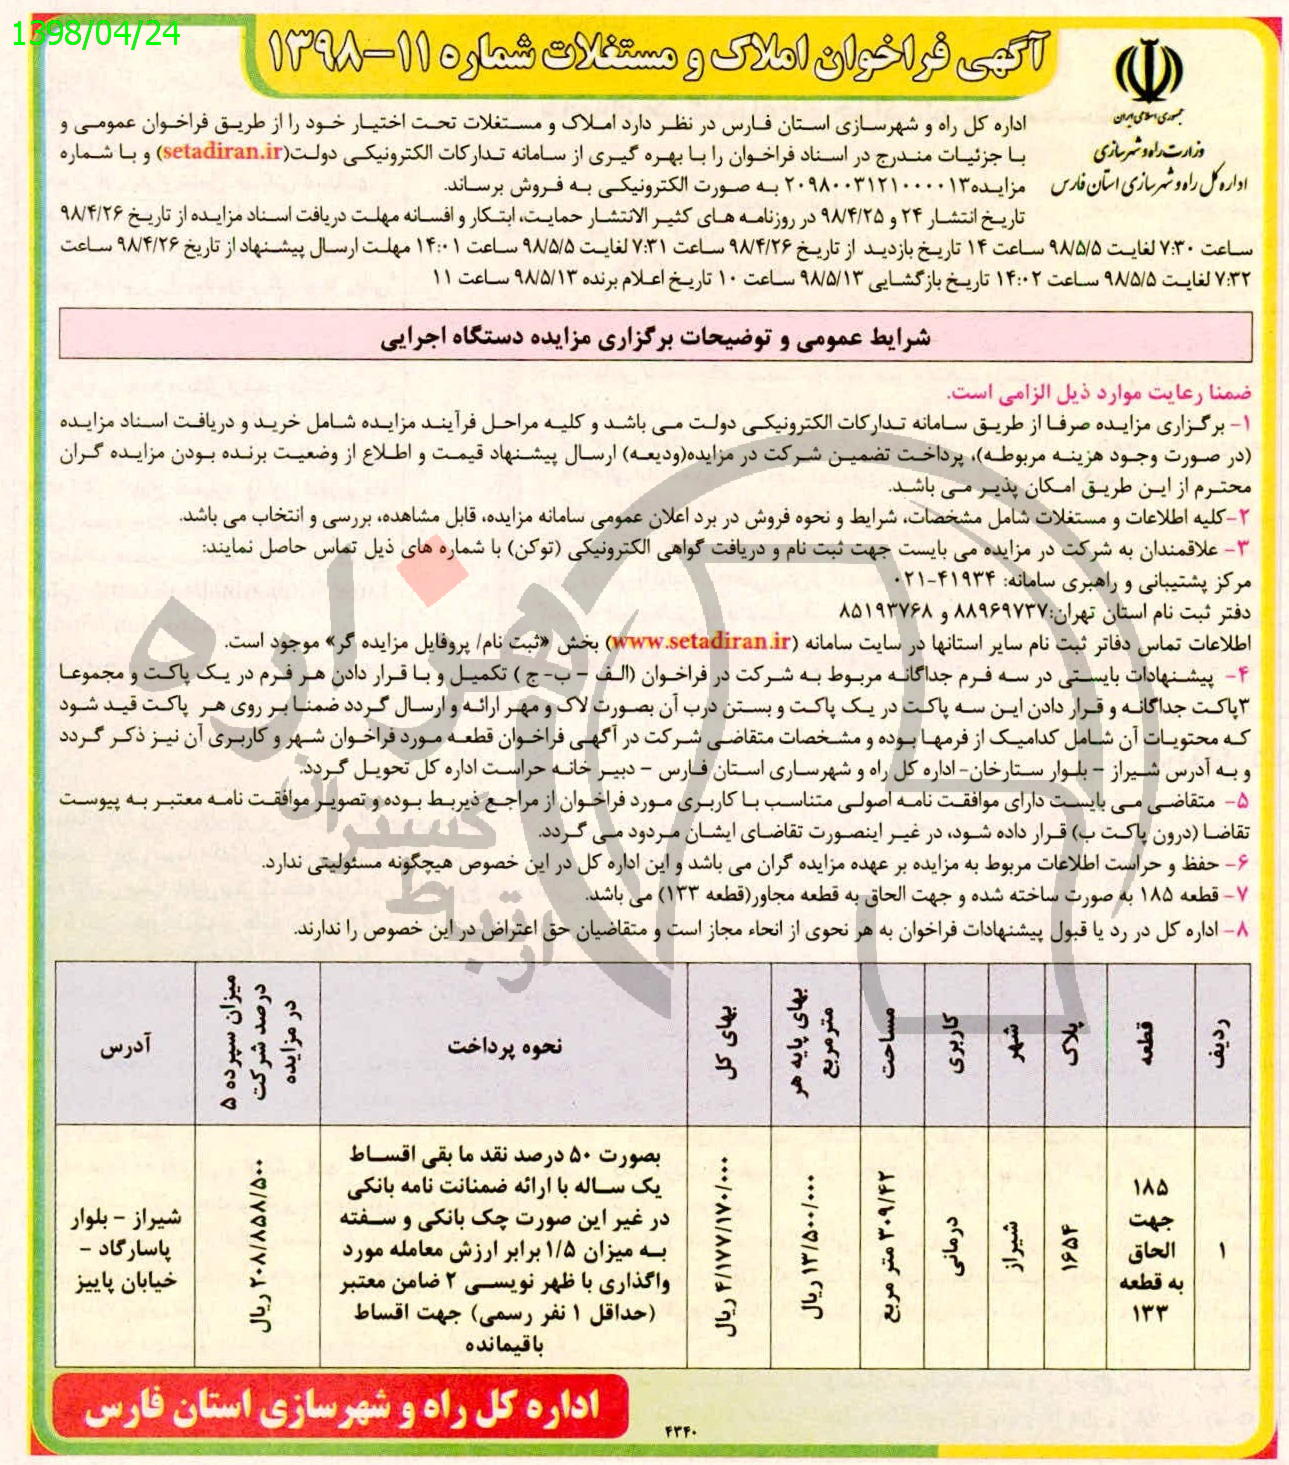 1398/04/24
آگهی فراخوان املاک و مستغلات شماره ۱۱-۱۳۹۸
جمهوری اسلامی ایران
وزارت راه و شهرسازی
اداره کل راه و شهرسازی استان فارس
اداره کل راه و شهرسازی استان فارس در نظر دارد املاک و مستغلات تحت اختیار خود را از طریق فراخوان عمومی و
با جزئیات مندرج در اسناد فراخوان را با بهره گیری از سامانه تدارکات الکترونیکی دولت(setadiran.ir) و با شماره
مزایده۲۰۹۸۰۰۳۱۲۱۰۰۰۰۱۳ به صورت الکترونیکی به فروش برساند.
تاریخ انتشار ۲۴ و ۹۸/۴/۲۵ در روزنامه های کثیر الانتشار حمایت، ابتکار و افسانه مهلت دریافت اسناد مزایده از تاریخ ۹۸/۴/۲۶
ساعت ۷:۳۰ لغایت ۹۸/۵/۵ ساعت ۱۴ تاریخ بازدید از تاریخ ۹۸/۴/۲۶ ساعت ۷:۳۱ لغایت ۹۸/۵/۵ ساعت ۱۴:۰۱ مهلت ارسال پیشنهاد از تاریخ ۹۸/۴/۲۶ ساعت
۷:۳۲ لغایت ۹۸/۵/۵ ساعت ۱۴:۰۲ تاریخ بازگشایی ۹۸/۵/۱۳ ساعت ۱۰ تاریخ اعلام برنده ۹۸/۵/۱۳ ساعت ۱۱
شرایط عمومی و توضیحات برگزاری مزایده دستگاه اجرایی
ضمنا رعایت موارد ذیل الزامی است.
۱- برگزاری مزایده صرفا از طریق سامانه تدارکات الکترونیکی دولت می باشد و کلیه مراحل فرآیند مزایده شامل خرید و دریافت اسناد مزایده
(در صورت وجود هزینه مربوطه)، پرداخت تضمین شرکت در مزایده(ودیعه) ارسال پیشنهاد قیمت و اطلاع از وضعیت برنده بودن مزایده گران
محترم از این طریق امکان پذیر می باشد.
۲-کلیه اطلاعات و مستغلات شامل مشخصات، شرایط و نحوه فروش در برد اعلان عمومی سامانه مزایده، قابل مشاهده، بررسی و انتخاب می باشد.
۳- علاقمندان به شرکت در مزایده می بایست جهت ثبت نام و دریافت گواهی الکترونیکی (توکن) با شماره های ذیل تماس حاصل نمایند:
مرکز پشتیبانی و راهبری سامانه: ۴۱۹۳۴-۰۲۱
دفتر ثبت نام استان تهران:۸۸۹۶۹۷۳۷ و ۸۵۱۹۳۷۶۸
اطلاعات تماس دفاتر ثبت نام سایر استانها در سایت سامانه (www.setadiran.ir) بخش «ثبت نام/ پروفایل مزایده گر» موجود است.
۴- پیشنهادات بایستی در سه فرم جداگانه مربوط به شرکت در فراخوان (الف - ب- ج ) تکمیل و با قرار دادن هر فرم در یک پاکت و مجموعا
۳پاکت جداگانه و قرار دادن این سه پاکت در یک پاکت و بستن درب آن بصورت لاک و مهر ارائه و ارسال گردد ضمنا بر روی هر پاکت قید شود
که محتویات آن شامل کدامیک از فرمها بوده و مشخصات متقاضی شرکت در آگهی فراخوان قطعه مورد فراخوان شهر و کاربری آن نیز ذکر گردد
و به آدرس شیراز - بلوار ستارخان- اداره کل راه و شهرساری استان فارس - دبیر خانه حراست اداره کل تحویل گردد.
۵- متقاضی می بایست دارای موافقت نامه اصولی متناسب با کاربری مورد فراخوان از مراجع ذیربط بوده و تصویر موافقت نامه معتبر به پیوست
تقاضا (درون پاکت ب) قرار داده شود، در غیر اینصورت تقاضای ایشان مردود می گردد.
۶- حفظ و حراست اطلاعات مربوط به مزایده بر عهده مزایده گران می باشد و این اداره کل در این خصوص هیچگونه مسئولیتی ندارد.
۷- قطعه ۱۸۵ به صورت ساخته شده و جهت الحاق به قطعه مجاور(قطعه ۱۳۳) می باشد.
۸- اداره کل در رد یا قبول پیشنهادات فراخوان به هر نحوی از انحاء مجاز است و متقاضیان حق اعتراض در این خصوص را ندارند.
هزاره
گستران
ارتباط
ردیف
قطعه
پلاک
شهر
کاربری
مساحت
بهای پایه هر
مترمربع
بهای کل
نحوه پرداخت
میزان سپرده ۵
درصد شرکت
در مزایده
آدرس
۱
۱۸۵
جهت
الحاق
به قطعه
۱۳۳
۱۶۵۴
شیراز
درمانی
۳۰۹/۴۲ متر مربع
۱۳/۵۰۰/۰۰۰ ریال
۴/۱۷۷/۱۷۰/۰۰۰ ریال
بصورت ۵۰ درصد نقد ما بقی اقساط
یک ساله با ارائه ضمنانت نامه بانکی
در غیر این صورت چک بانکی و سفته
به میزان ۱/۵ برابر ارزش معامله مورد
واگذاری با ظهر نویسی ۲ ضامن معتبر
(حداقل ۱ نفر رسمی) جهت اقساط
باقیمانده
۲۰۸/۸۵۸/۵۰۰ ریال
شیراز - بلوار
پاسارگاد -
خیابان پاییز
اداره کل راه و شهرسازی استان فارس
۴۳۴۰